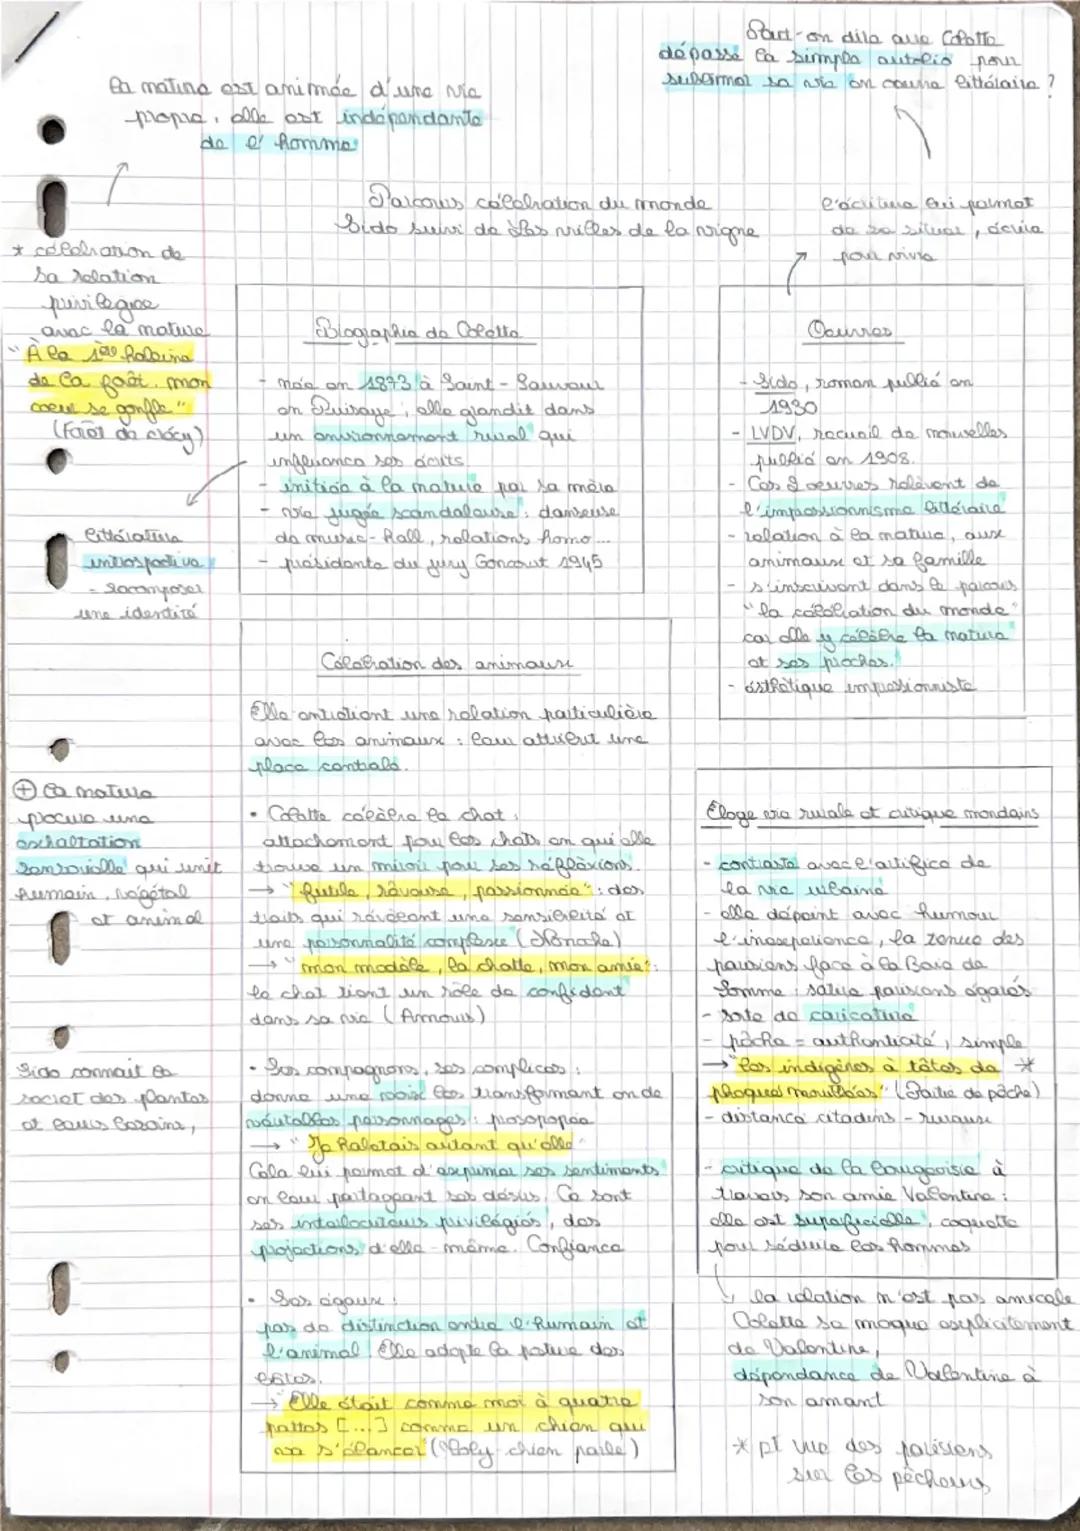 Peut-on dire que Colette
dépasse la simple autobio pour
sublimer sa vie en œuvre littéraire ?
la nature est animée d'une vie
propre, elle est indépendante
de l'homme
Parcours célébration du monde
Sido suivi de Les vrilles de la vigne
l'écriture lui permet
de se situer, écrire
pour vivre
* célébration de
sa relation
privilégiée
avec la nature
"À la 1ère haleine
de la forêt, mon
cœur se gonfle"
(Forêt de Crécy)
littérature
introspective
- recomposer
une identité
Biographie de Colette
- née en 1873 à Saint-Sauveur
en Puisaye, elle grandit dans
un environnement rural qui
influence ses écrits
- initiée à la nature par sa mère
- vie jugée scandaleuse : danseuse
de music-hall, relations homo...
- présidente du jury Goncourt 1945
Oeuvres
- Sido, roman publié en
1930
- LVDV, recueil de nouvelles
publié en 1908.
- Ces 2 oeuvres relèvent de
l'impressionnisme littéraire
- relation à la nature, aux
animaux et sa famille
- s'inscrivent dans le parcours
"la célébration du monde"
car elle y célèbre la nature
et ses proches.
- esthétique impressionniste
Célébration des animaux
Elle entretient une relation particulière
avec les animaux : leur attribut une
place centrale.
• Colette célèbre le chat :
attachement pour les chats en qui elle
trouve un miroir pour ses réflexions.
→ "futile, rêveuse, passionnée" : des
traits qui révèlent une sensibilité et
une personnalité complexe (Nonoche)
→ "mon modèle, la chatte, mon amie" :
le chat tient un rôle de confident
dans sa vie (Amours)
• Ses compagnons, ses complices :
donne une voix, les transformant en de
véritables personnages : prosopopée
→ "Je haletais autant qu'elle"
Cela lui permet d'exprimer ses sentiments
en leur partageant ses désirs. Ce sont
ses interlocuteurs privilégiés, des
projections d'elle-même. Confiance
• Ses égaux :
pas de distinction entre l'humain et
l'animal. Elle adopte la posture des
bêtes.
→ "Elle était comme moi à quatre
pattes [...] comme un chien qui
va s'élancer" (Toby-chien parle)
⊕ la nature
procure une
exhaltation
sensorielle qui unit
humain, végétal
et animal
Sido connait le
secret des plantes
et leurs besoins,
Eloge vie rurale et critique mondains
- contraste avec l'artifice de
la vie urbaine
- elle dépeint avec humour
l'inexpérience, la tenue des
parisiens face à la Baie de
Somme : satire parisiens égarés
- sorte de caricature
- pêche = authenticité, simple
→ "les indigènes à têtes de *
phoques mouillés" (Partie de pêche)
- distance citadins - ruraux
- critique de la bourgeoisie à
travers son amie Valentine :
elle est superficielle, coquette
pour séduire les hommes
↳ la relation n'est pas amicale
Colette se moque explicitement
de Valentine,
dépendance de Valentine à
son amant
* pt vue des parisiens
sur les pêcheurs